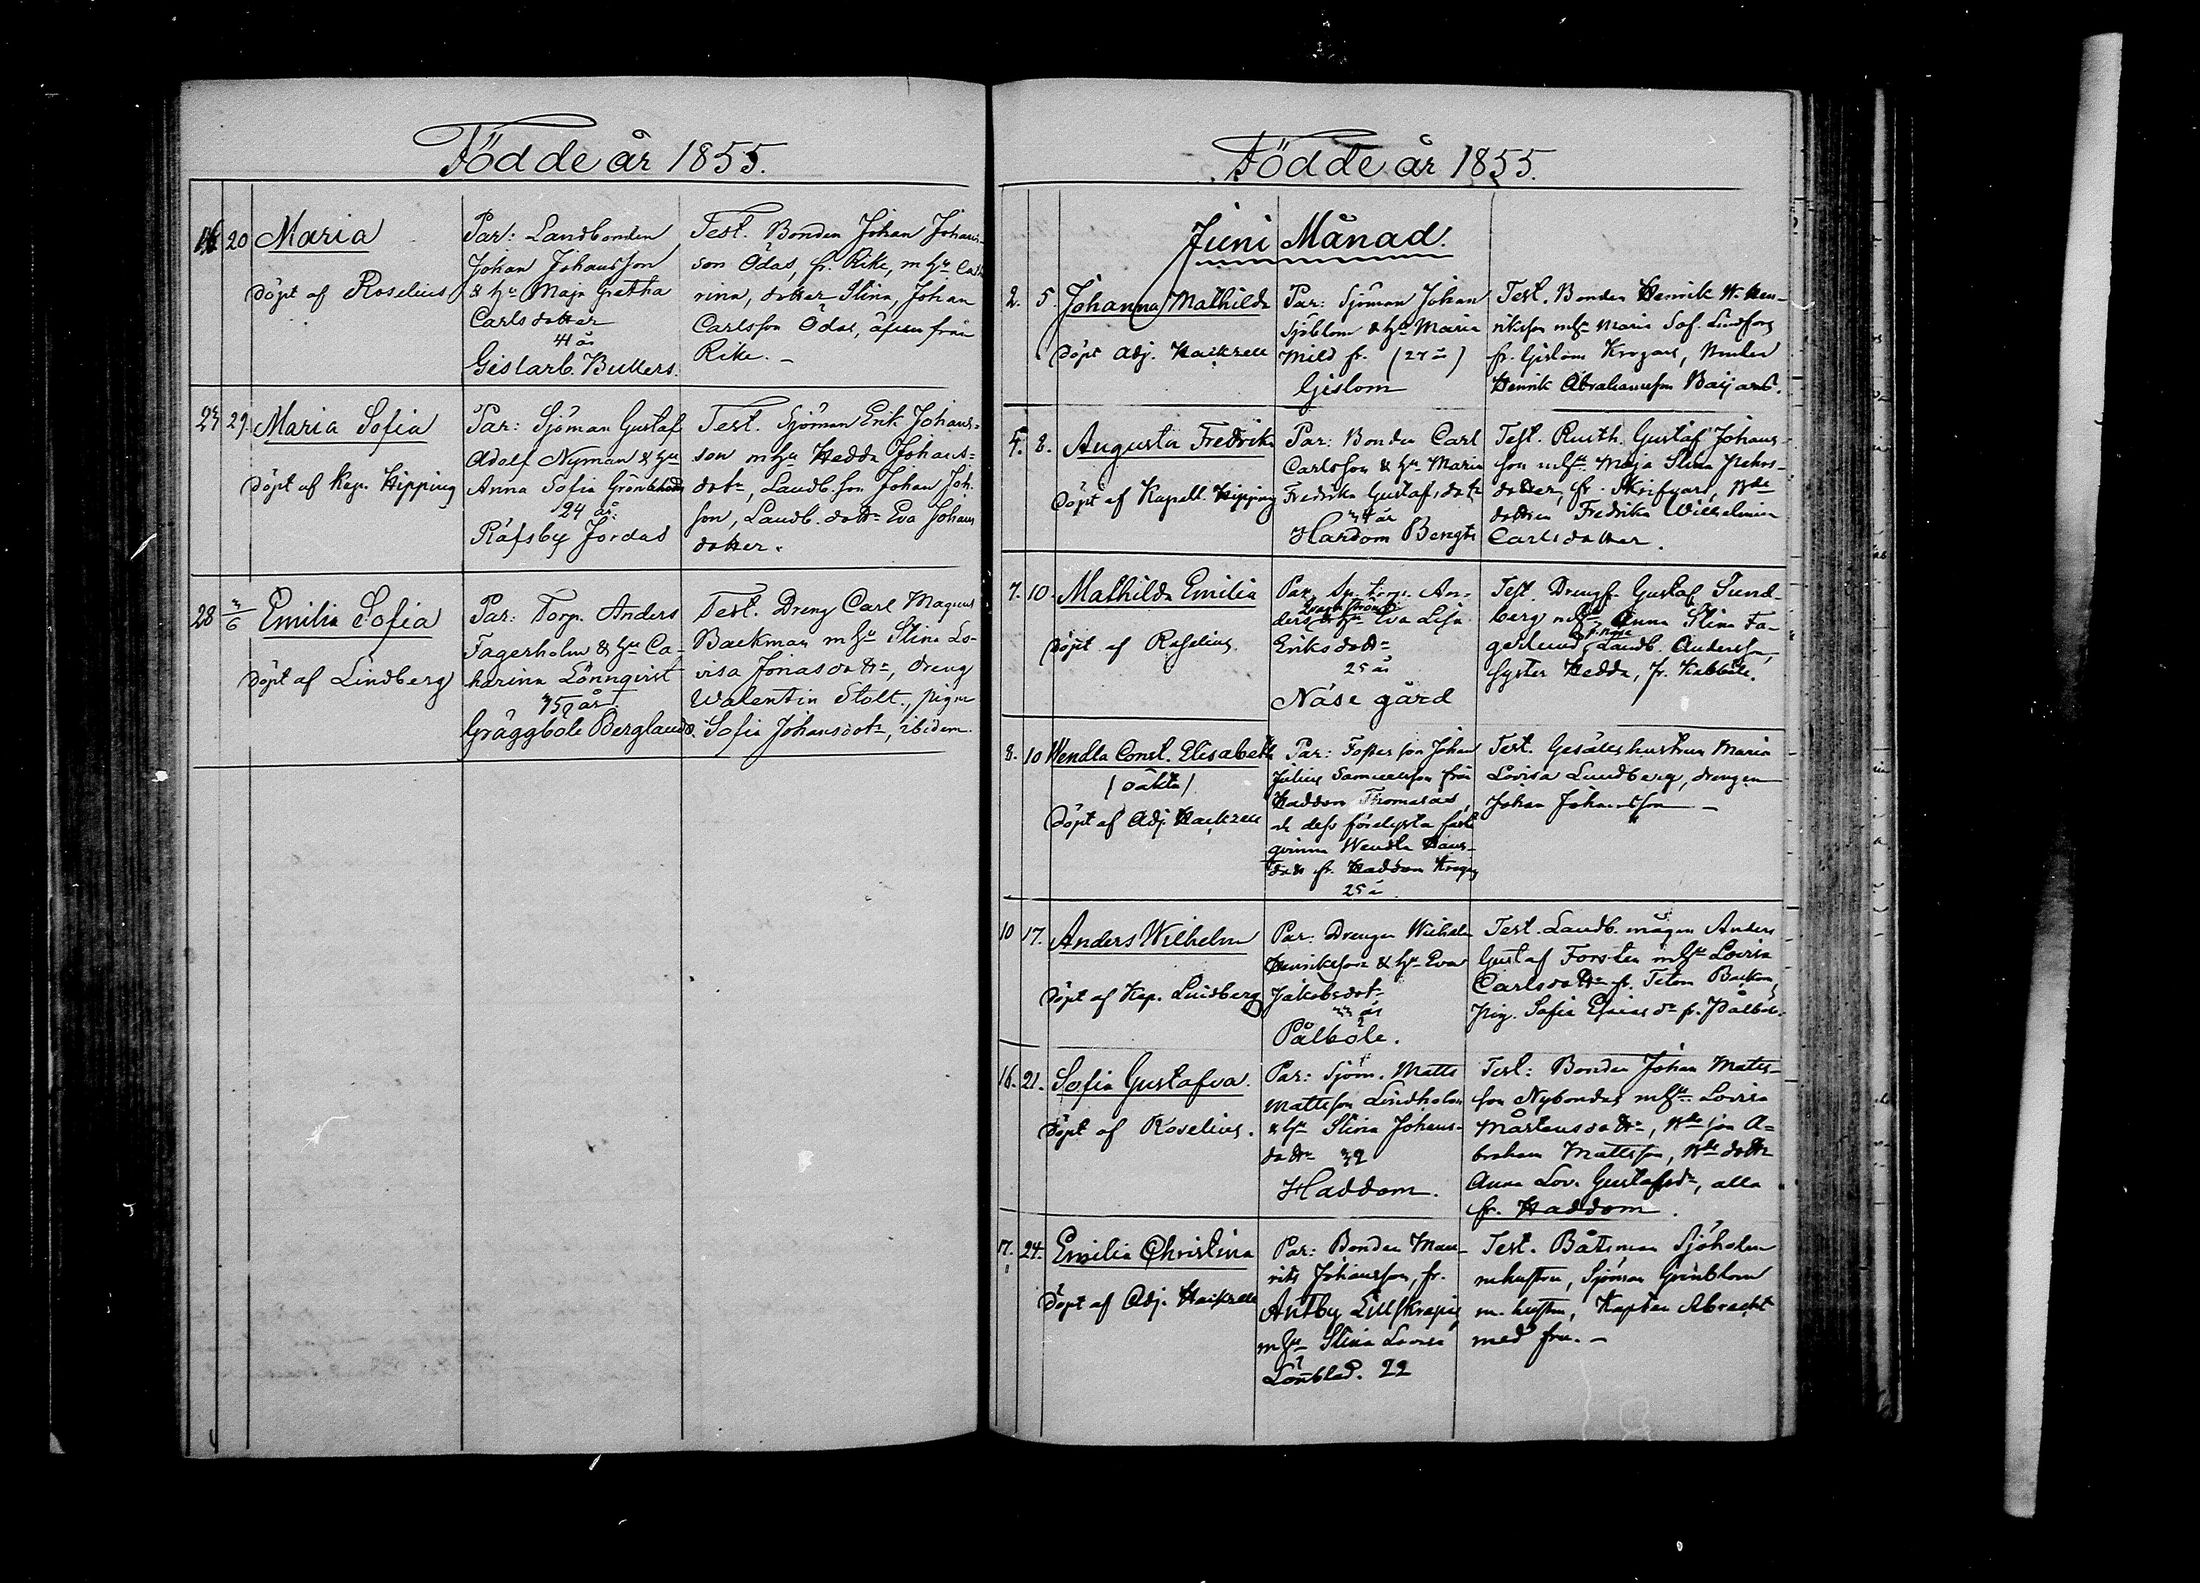 Födde år 1855.
16 20 Maria
Döpt af Roselius
Par: Landbonden
Johan Johansson
& hu Maja Gretha
Carlsdotter
41 år
Gislarb. Bullers.
Test. Bonden Johan Johans-
son Ödas, fr. Rike, m hu Cath
rina, dotter Stina, Johan
Carlsson Ödas, äfven från
Rike. –
23 29. Maria Sofia
Döpt af Kap. Hipping
Par: Sjöman Gustaf
Adolf Nyman & hu
Anna Sofia Grönholm
24 år.
Räfsby Jordas
Test. Sjöman Erik Johans-
son m hu Hedda Johans-
dotr, Landb. son Johan Joh.
son, Landb. dottr Eva Johans
dotter.
28 3/6 Emilia Sofia
Döpt af Lindberg
Par: Torp. Anders
Fagerholm & hu Ca-
harina Lönnqvist
35 år
Gräggböle Berglands.
Test. Dreng Carl Magnus
Backman m hu Stina Lo-
visa Jonasdottr, dreng
Walentin Stolt, pigan
Sofia Johansdotr, ibidem.
Födde år 1855.
Juni Månad.
2. 5. Johanna Mathilda
Döpt Adj. Hackzell
Par: Sjöman Johan
Sjöblom & hu Maria
Mild fr. (27 å)
Gislom
Test. Bonden Henrik W. Hen-
riksson m hu Maria Sof. Lindfors
fr. Gislom Krogars,
Henrik Abrahamsson Baijars.
5. 8. Augusta Fredrika
Döpt af Kapell. Hipping
Par: Bonden Carl
Carlsson & hu Maria
Fredrika Gustafsdotr
34 år
Hardom Bengts
Test. Rusth. Gustaf Johans-
son m hu Maja Stina Pehrs-
dotter, fr. Skrifvars, Bde
dottren Fredrika Wilhelmina
Carlsdotter.
7. 10. Mathilda Emilia
Döpt af Roselius.
Par. Sp. torp. An-
ders & hu Eva Lisa
Eriksdottr
25 år
Näse gård
Test. Drengf. Gustaf Sund-
berg m hu Anna Stina Fa-
gerlund, Landb. Andersson,
Syster Hedda, fr. Kabböle.
8. 10 Wendla Const. Elisabeth
(oäkta)
Döpt af Adj. Hackzell
Par: Fosterson Johan
Julius Samuelsson från
Haddom Thomasas,
och dess förelysta fäst
qvinna Wendla Hans-
dottr fr. Haddom Krogars
25 å
Test. Gesällshustrun Maria
Lovisa Lundberg, drengen
Johan Johansson –
10 17. Anders Wilhelm
Döpt af Kap. Lindberg
Par: Drengen Wilhelm
Henriksson & hu Eva
Jakobsdotr
33 år
Pålböle.
Test. Landb. mågen Anders
Gustaf Forstén m hu Lovisa
Carlsdottr fr. Tetom Backars,
pig. Sofia Esaiasdr fr. Pålböle.
16. 21. Sofia Gustafva.
Döpt af Roselius.
Par: Sjöm. Matts
Mattsson Lindholm
& hu Stina Johans-
dottr 39
Haddom.
Test: Bonden Johan Matts-
son Nybondas m hu Lovisa
Mårtensdottr, Bde son A=
braham Mattsson, Bde dottr
Anna Lov. Gustafsdr, alla
fr. Haddom.
17. 24. Emilia Christina
Döpt af Adj. Hackzell
Par: Bonden Mau-
rits Johansson, fr.
Antby Lillkrapis
m hu Stina Lovisa
Lönblad. 22
Test. Båtsman Sjöholm
m hustru, Sjöman Grönblom
m. hustru, Kapten Abrecht
med fru. –